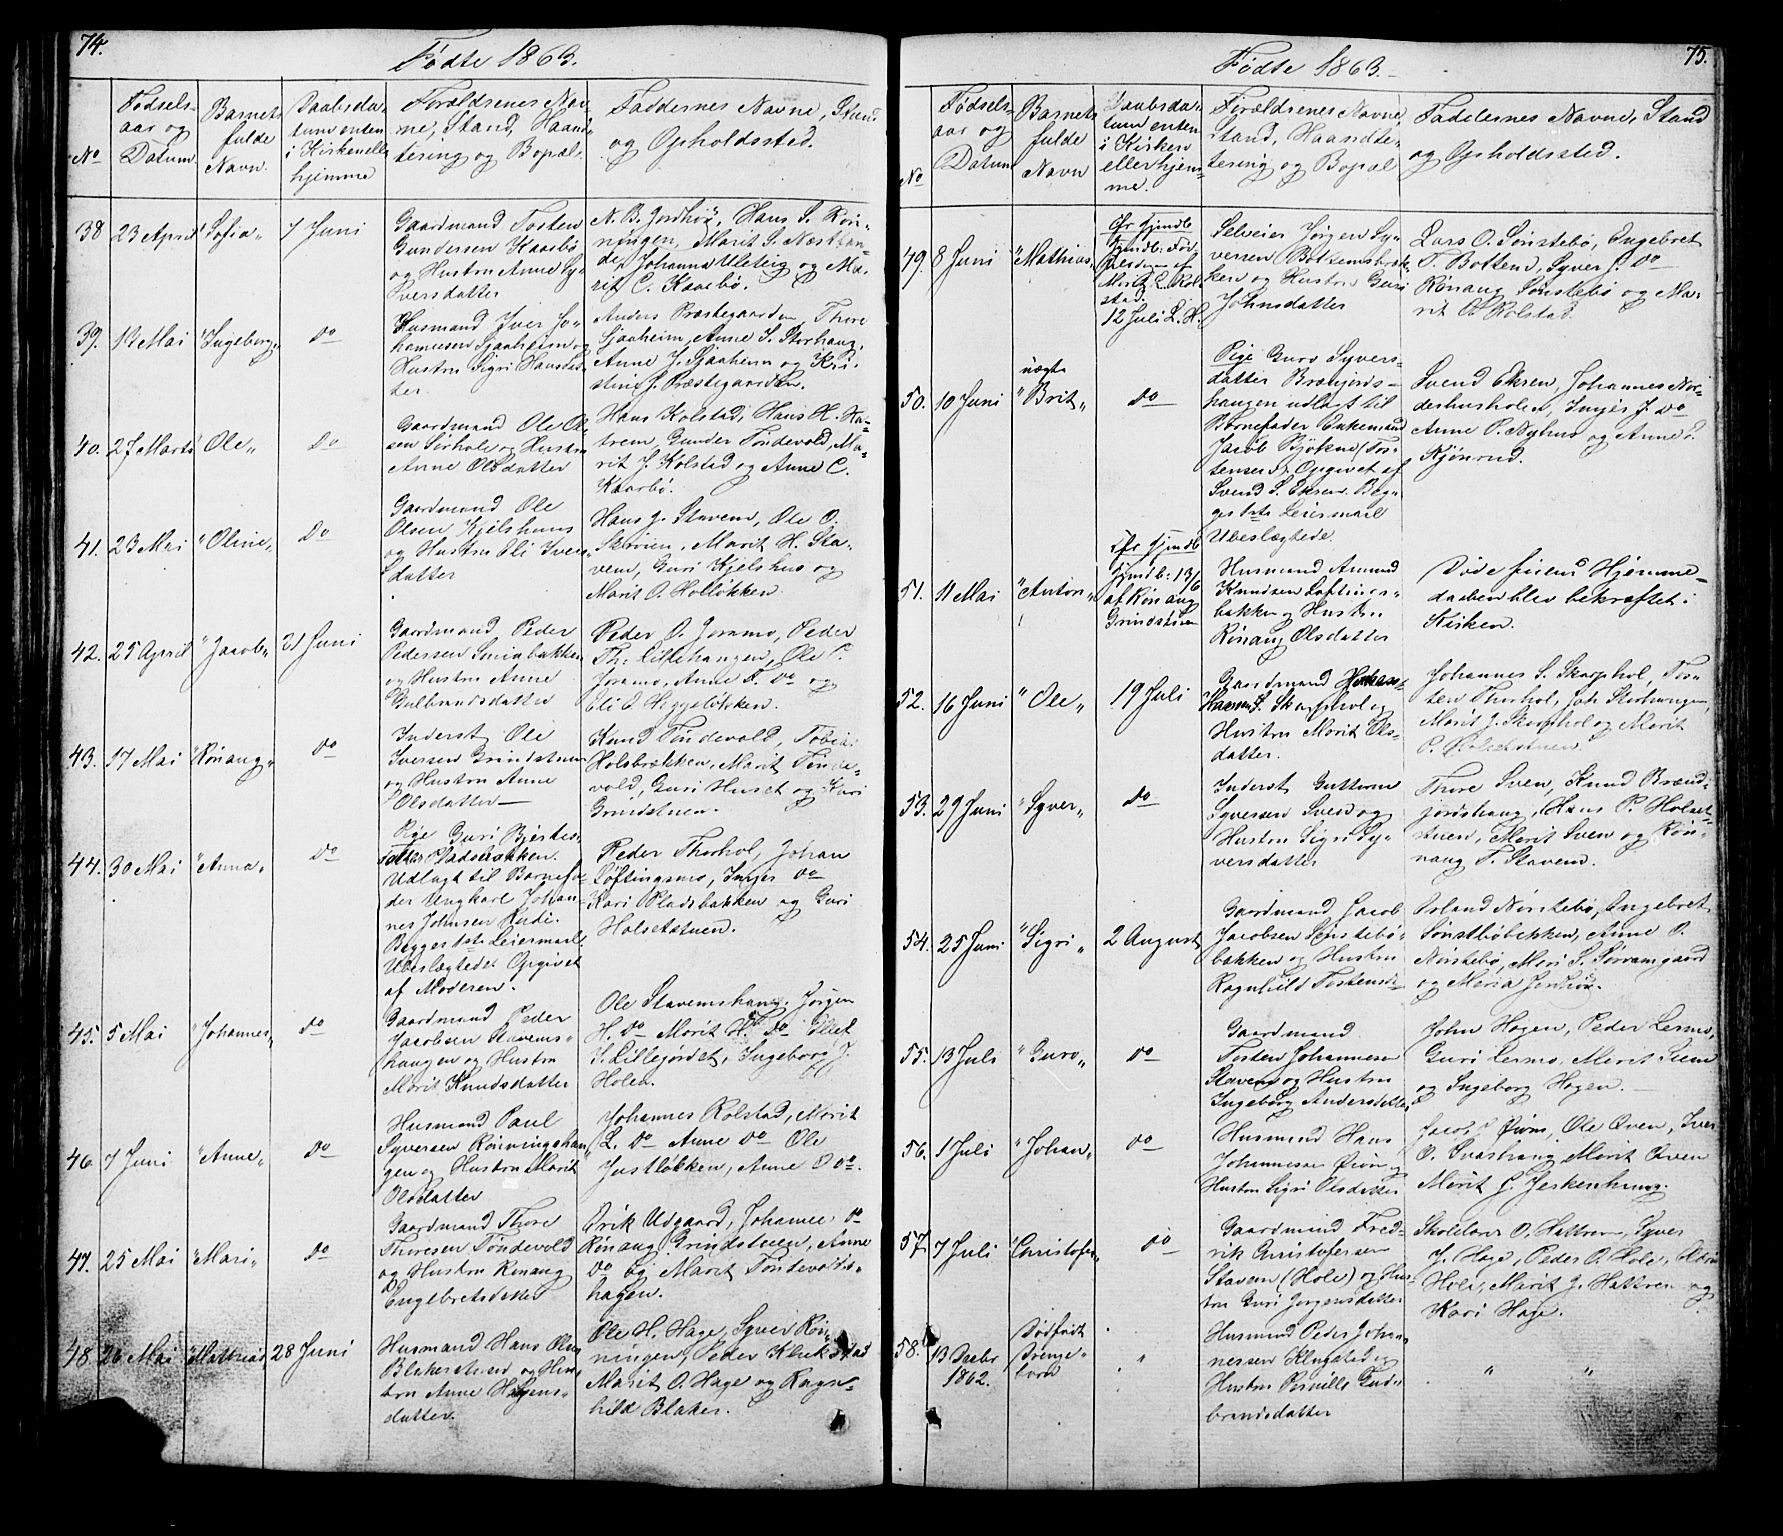 74.
Fødte 1863.
No
Fødsels-
aar og
Datum.
Barnets
fulde
Navn.
Daabsda-
tum enten
i Kirken ell
hjemme
Forældrenes Nav-
ne, Stand, Haand-
tering og Bopæl.
Faddernes Navne, Stand
og Opholdssted.
38 23 April "Sofia" 7 Juni
Gaardmand Tosten
Gundersen Kaasbø
og Hustru Anne Sy-
versdatter
N. B. Jordhøi, Hans S. Røn-
ningen, Marit S.
Johanna Uleteig og Ma-
rit C. Kaasbø.
39. Mai "Ingeborg" Do
Husmand Iver Jo-
hannesen Sjaaheim og
Hustru Sigri Hansdat-
ter
Anders Præstegaarden, Thore
Sjaaheim, Anne S. Storhaug,
Anne J. Sjaaheim og Kri-
stine J. Præstegaarden.
40. 27 Marts Ole" Do
Gaardmand Ole Ol-
sen og Hustru
Anne Olsdatter
Hans Kolstad, Hans H. Ha-
trem, Gunder Tøndevold, Ma-
rit J. Kolstad og Anne C.
Kaasbø.
41. 23 Mai "Oline" Do
Gaardmand Ole
Olsen Kjelshuus
og Hustru Eli Ivers-
datter
Hans J. Stavem, Ole O.
Skotien, Marit H. Sta-
vem, Guri Kjelshus og
Marit O. Holløkken.
42. 25 April "Jacob" 21 Juni
Gaardmand Peder
Pedersen Smiabakken
og Hustru Anne
Gulbrandsdatter
Peder O. Joramo, Peder
Th. Lillehaugen, Ole P.
Joramo, Anne T. Do og
Eli O. Heggeløkken.
43. 17 Mai "Rønaug" Do
Inderst Ole
Iversen Grindstuen
og Hustru Anne
Olsdatter
Knud Tøndevold, Tobias
Holsbrækken, Marit Tønde-
vold, Guri Huset og Kari
Grindstuen.
44. 30 Mai "Anna" Do
Pige Guri Bjøsties-
datter Pladsbakken.
Udlagt til Barnefa-
der Ungkarl Johan-
nes Johnsen Rudi.
Begges 1ste Leiermaal.
Ubeslægtede. Opgivet
af Moderen.
Peder Thorhol, Johan
Løftingsmo, Inger Do
Kari Pladsbakken og Guri
Holsetstuen.
45. 5 Mai "Johannes" Do
Gaardmand Peder
Jacobsen Stavems-
haugen og Hustru
Marit Knudsdatter
Ole Stavemshaug, Jørgen
H. Do Marit H. Do Ellef
T. Lillejordet, Ingeborg J.
Holen.
46. 7 Juni "Anne" Do
Husmand Paul
Syversen Rønningshau-
gen og Hustru Marit
Olsdatter
Johannes Kolstad, Marit
L. Do Anne Do Ole
Jostløkken, Anne O Do.
47. 25 Mai "Mari" Do
Gaardmand Thore
Thoresen Tøndevold
og Hustru Rønaug
Engebretsdatter
Erik Udgaard, Johanne Do
Rønaug Grindstuen, Anne
Do og Marit Tøndevolds-
hagen.
48. 26 Mai "Mathias" 28 Juni
Husmand Hans Olsen
Blekerstuen og Hus-
tru Anne Hagens-
datter.
Ole H. Hage, Syver Røn-
ningen, Peder Klukstad
Marit O. Hage og Ragn-
hild Blaker.
75.
Fødte 1863.
No
Fødsels-
aar og
Datum
Barnets
fulde
Navn
Daabsda-
tum enten
i Kirken
eller hjem-
me.
Forældrenes Navne,
Stand, Haandte-
ring og Bopæl
Faddernes Navne, Stand
og Opholdssted.
49. 8 Juni "Mathias"
12 Juli L. H.
Selveier Jørgen Sy-
versen Bottensbrek-
ken og Hustru Guri
Johnsdatter
Lars O. Sønstebø, Engebret
T. Bottem, Syver J. Do
Rønaug Sønstebø og Ma-
rit O. Kolstad.
50. 10 Juni
uægte
"Brit" Do
Pige Guro Syvers-
datter Brænjords-
haugen udlagt til
Barnefader Enkemand
Jacob Bjøkne (Tos-
tensen). Opgivet af
Svend S. Eksen. Beg-
ges 1ste Leiermaal
Ubeslægtede.
Svend Eksen, Johannes Nor-
derhusholen, Inger J. Do
Anne P. Nyhus og Anne
Kjønrud.
51. 11 Mai "Anton"
Gjendb: 13/6
af Rønaug
Grindstuen
Husmand Amund
Knudsen Løftings-
bakken og Hustru
Rønaug Olsdatter
Døde førend Hjemme-
daaben blev bekræftet i
Kirken.
52. 16 Juni "Ole" 19 Juli
Gaardmand
S. Skarphol og
Hustru Marit Ols-
datter.
Johannes S. Skarphol, Tos-
ten Thorhol, Joh. Storhaugen,
Marit J. Skarphol og Marit
P. Holsetstuen.
53. 29 Juni "Syver" Do
Inderst Guttorm
Syversen Sveen og
Hustru Sigri Sy-
versdatter
Thore Sven, Knud Brænd-
jordshaug, Hans P. Holset-
stuen, Marit Sven og Røn-
naug T. Stavem.
54. 25 Juni "Sigri" 2 August
Gaardmand Jacob
Jacobsen Sønstebø-
bakken og Hustru
Ragnhild Tostensd-
Erland Norstebø, Engebret
Sønstebøbekken, Anne O.
Norstebø, Mari S. Sørramgaard
og Maria Jordhøi.
55. 13 Juli "Guro" Do
Gaardmand
Tosten Johannesen
Stavem og Hustru
Ingeborg Andersdatter
John Hagen, Peder Lesmo,
Guri Lesmo, Marit Lien
og Ingeborg Hagen.
56. 1 Juli "Johan" Do
Husmand Hans
Johannessen Øien og
Hustru Sigri Olsdatter
Jacob Øien, Ole Qven, Iver
O. Svashaug, Marit Qven
Marit J. Jerkenhaug.
57. 7 Juli "Christofer" Do
Gaardmand Fred-
rik Christofersen
Stavem (Hole) og Hus-
tru Guri Jørgensdatter
Skolelærer O. Hattrem, Syver
J. Hage, Peder O. Hole,
Hole, Marit J. Hattrem og
Kari Hage.
58. 13 Decbr
1862.
Dødfødt
Drenge-
barn
"
Husmand Peder Johan-
nessen Klugstad og
Hustru Pernille Gud-
brandsdatter
" "